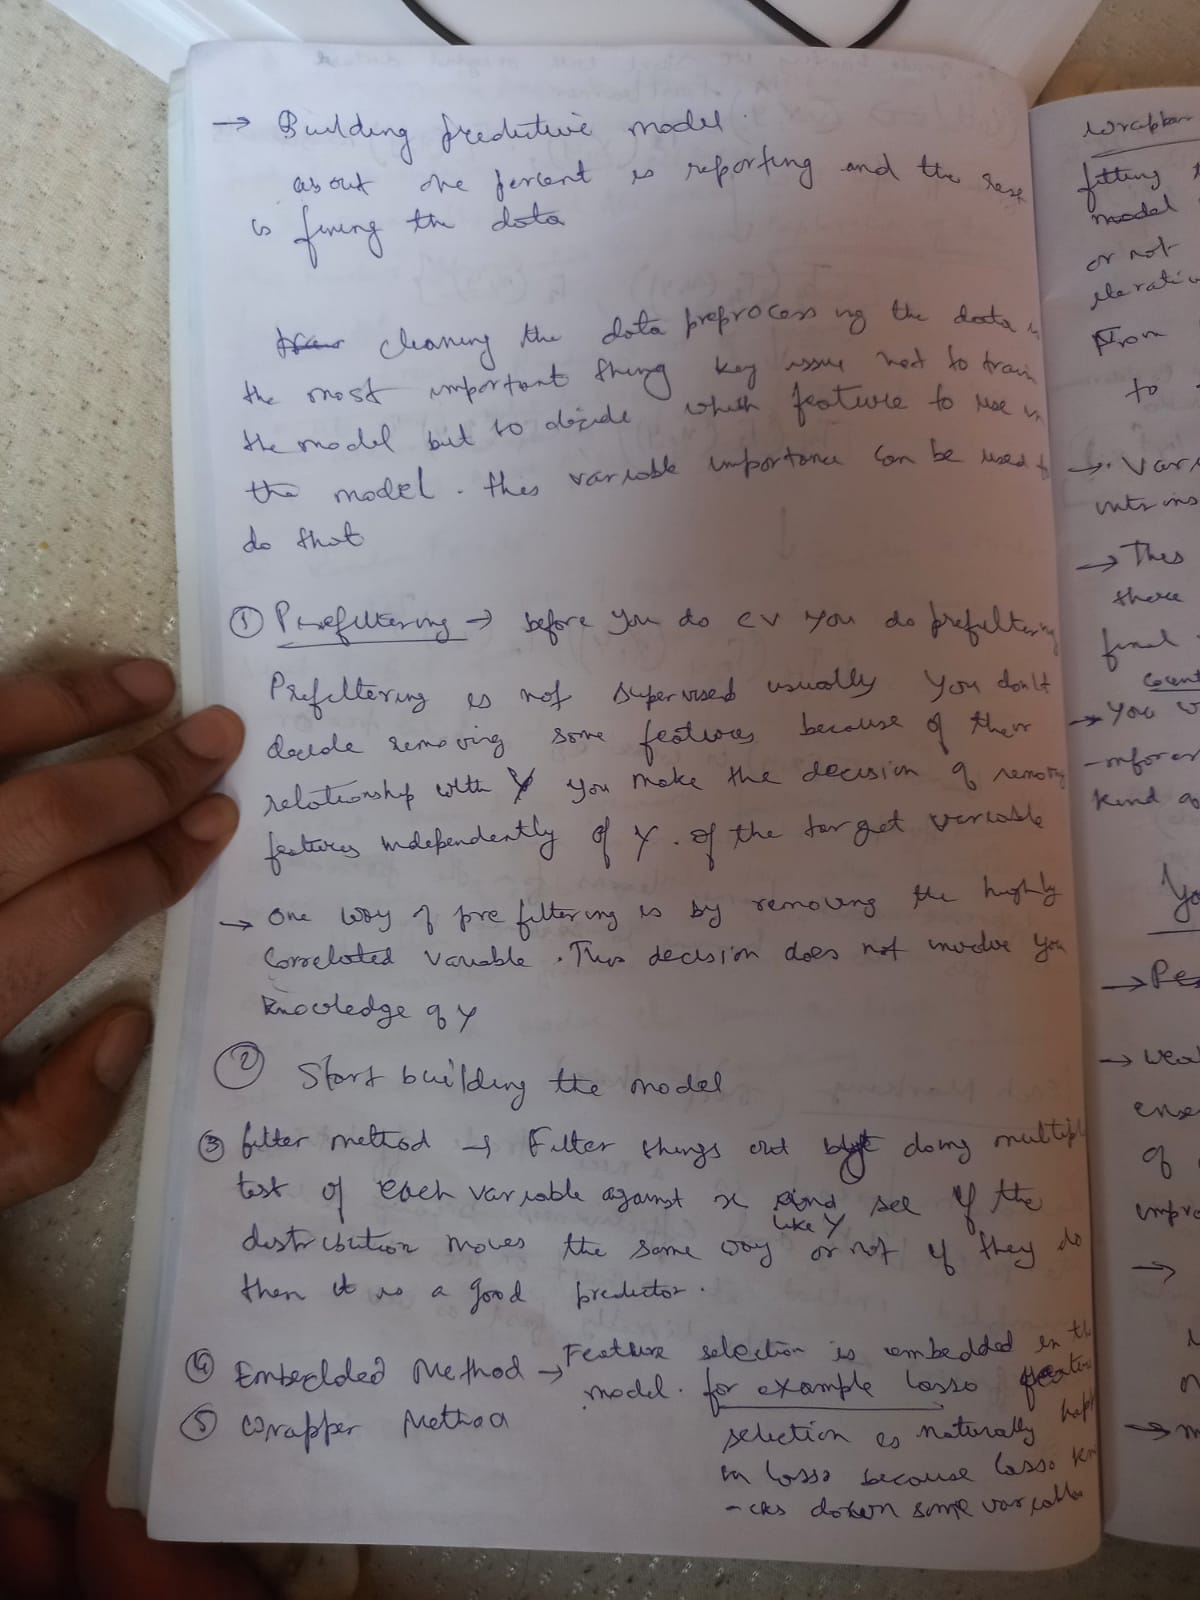 → Building predictive model.
about one percent is reporting and the rest
is fixing the data
cleaning the data preprocessing the data is
the most important thing key issue not to train
the model but to decide which feature to use in
the model. this variable importance can be used to
do that
① Prefiltering → before you do CV you do prefiltering
Prefiltering is not supervised usually you don't
decide removing some features because of their
relationship with Y you make the decision of removing
features independently of Y. of the target variable
→ One way of pre filtering is by removing the highly
Correlated variable. This decision does not involve you
Knowledge of Y
② Start building the model
③ filter method → Filter things out by doing multiple
test of each variable against x and see if the
like Y
distribution moves the same way or not if they do
then it is a good predictor.
④ Embedded Method → Feature selection is embedded in the
model. for example Lasso feature
⑤ Wrapper Method
selection is naturally
in lasso because lasso kn
-cks down some variables
Wrapper
fitting
model
or not
iterativ
From
to
→ Vari
intrins
→ This
there
final
→ You
-infor
kind of
Yo
→
→ Wea
ense
of
impro
→
→ m